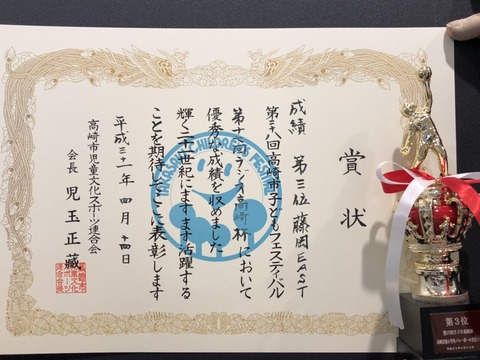 賞状
成績 第三位 藤岡EAST
第三八回高崎市子どもフェスティバル
第十七回ラジオ高崎杯において
優秀な成績を収めました
輝く二十一世紀にますます活躍する
ことを期待してここに表彰します
平成三十一年四月十四日
高崎市児童文化スポーツ連合会
会長 児玉正蔵
第3位